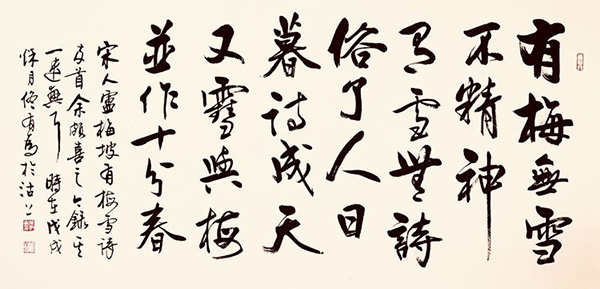 有梅無雪
不精神
有雪無詩
俗了人日
暮詩成天
又雪與梅
並作十分春
宋人盧梅坡有梅雪詩
首余頗喜之今錄其
一 無 時在戊戌
月 有為於沽上